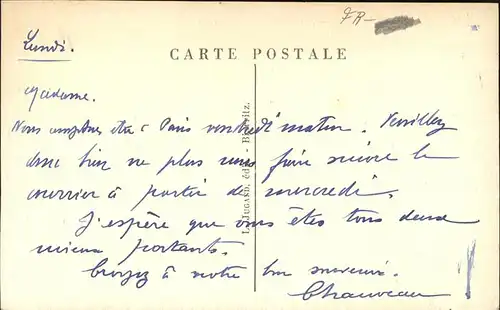 FR-
Lundi.
CARTE POSTALE
Madame.
Nous comptons être à Paris vendredi matin. Veuillez
donc bien ne plus nous faire suivre le
courrier à partir de mercredi.
J'espère que vous êtes tous deux
mieux portants.
Croyez à notre bon souvenir.
Chauveau
L. JUGAND, éd. - BIARRITZ.